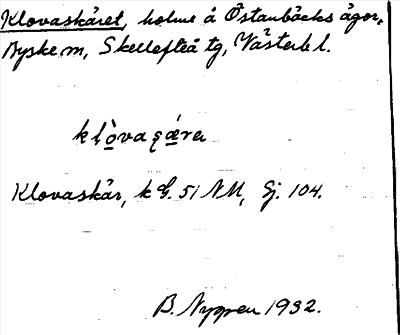 Klovaskäret, holme å Östanbäcks ägor,
Byske sn, Skellefteå tg, Västerb l.
klòvaʂæ̀rer
Klovaskär, k G. 51 NM, Gj. 104.
B. Nygren 1932.